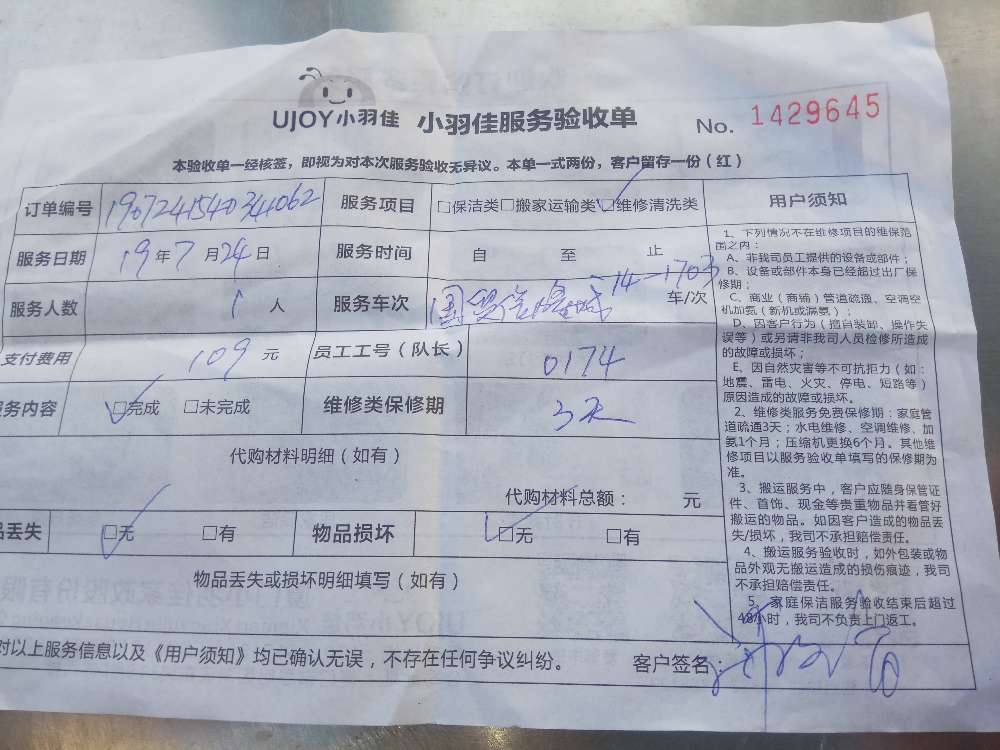 UJOY小羽佳 小羽佳服务验收单 No. 1429645
本验收单一经核签，即视为对本次服务验收无异议。本单一式两份，客户留存一份（红）
订单编号 190724154034062 服务项目 □保洁类□搬家运输类□维修清洗类 用户须知
服务日期 19年7月24日 服务时间 自 至 止
服务人数 1人 服务车次 14-1703 车/次
支付费用 109元 员工工号（队长） 0174
务内容 □完成 □未完成 维修类保修期 3天
代购材料明细（如有）
代购材料总额： 元
品丢失 □无 □有 物品损坏 □无 □有
物品丢失或损坏明细填写（如有）
1、下列情况不在维修项目的维保范
围之内：
A、非我司员工提供的设备或部件；
B、设备或部件本身已经超过出厂保
修期；
C、商业（商铺）管道疏通、空调空
机加氨（新机或漏氨）；
D、因客户行为（擅自装卸、操作失
误等）或另请非我司人员检修所造成
的故障或损坏；
E、因自然灾害等不可抗拒力（如：
地震、雷电、火灾、停电、短路等）
原因造成的故障或损坏。
2、维修类服务免费保修期：家庭管
道疏通3天；水电维修、空调维修、加
氨1个月；压缩机更换6个月。其他维
修项目以服务验收单填写的保修期为
准。
3、搬运服务中，客户应随身保管证
件、首饰、现金等贵重物品并看管好
搬运的物品。如因客户造成的物品丢
失/损坏，我司不承担赔偿责任。
4、搬运服务验收时，如外包装或物
品外观无搬运造成的损伤痕迹，我司
不承担赔偿责任。
5、家庭保洁服务验收结束后超过
48小时，我司不负责上门返工。
对以上服务信息以及《用户须知》均已确认无误，不存在任何争议纠纷。 客户签名：